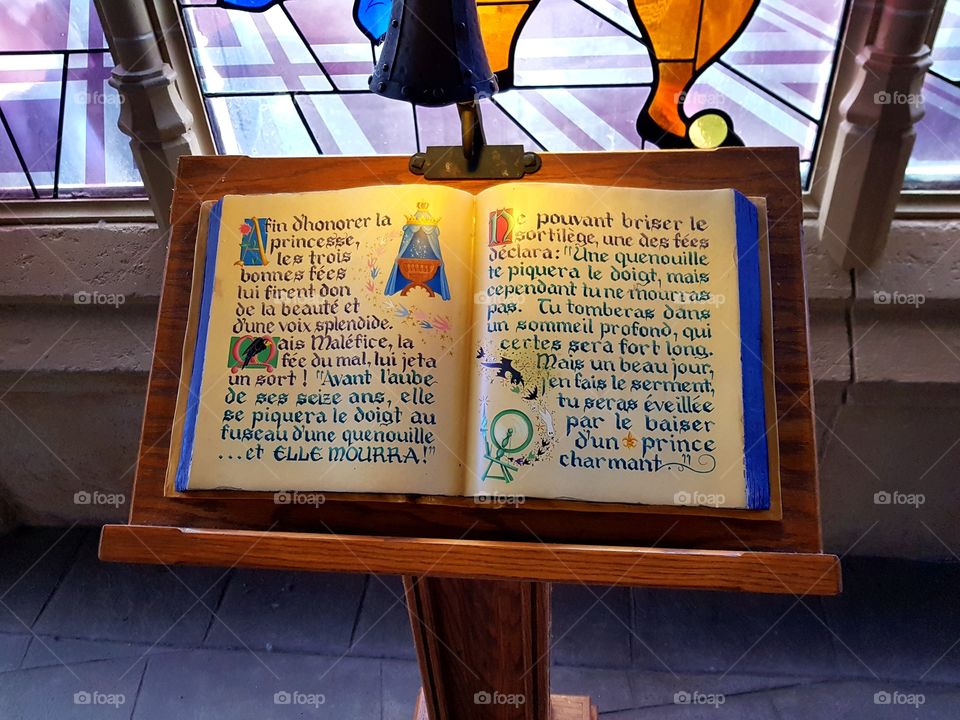 Afin d'honorer la
princesse,
les trois
bonnes fées
lui firent don
de la beauté et
d'une voix splendide.
Mais Maléfice, la
fée du mal, lui jeta
un sort ! "Avant l'aube
de ses seize ans, elle
se piquera le doigt au
fuseau d'une quenouille
...et ELLE MOURRA!"
Ne pouvant briser le
sortilège, une des fées
déclara: "Une quenouille
te piquera le doigt, mais
cependant tu ne mourras
pas. Tu tomberas dans
un sommeil profond, qui
certes sera fort long.
Mais un beau jour,
j'en fais le serment,
tu seras éveillée
par le baiser
d'un prince
charmant..."
foap